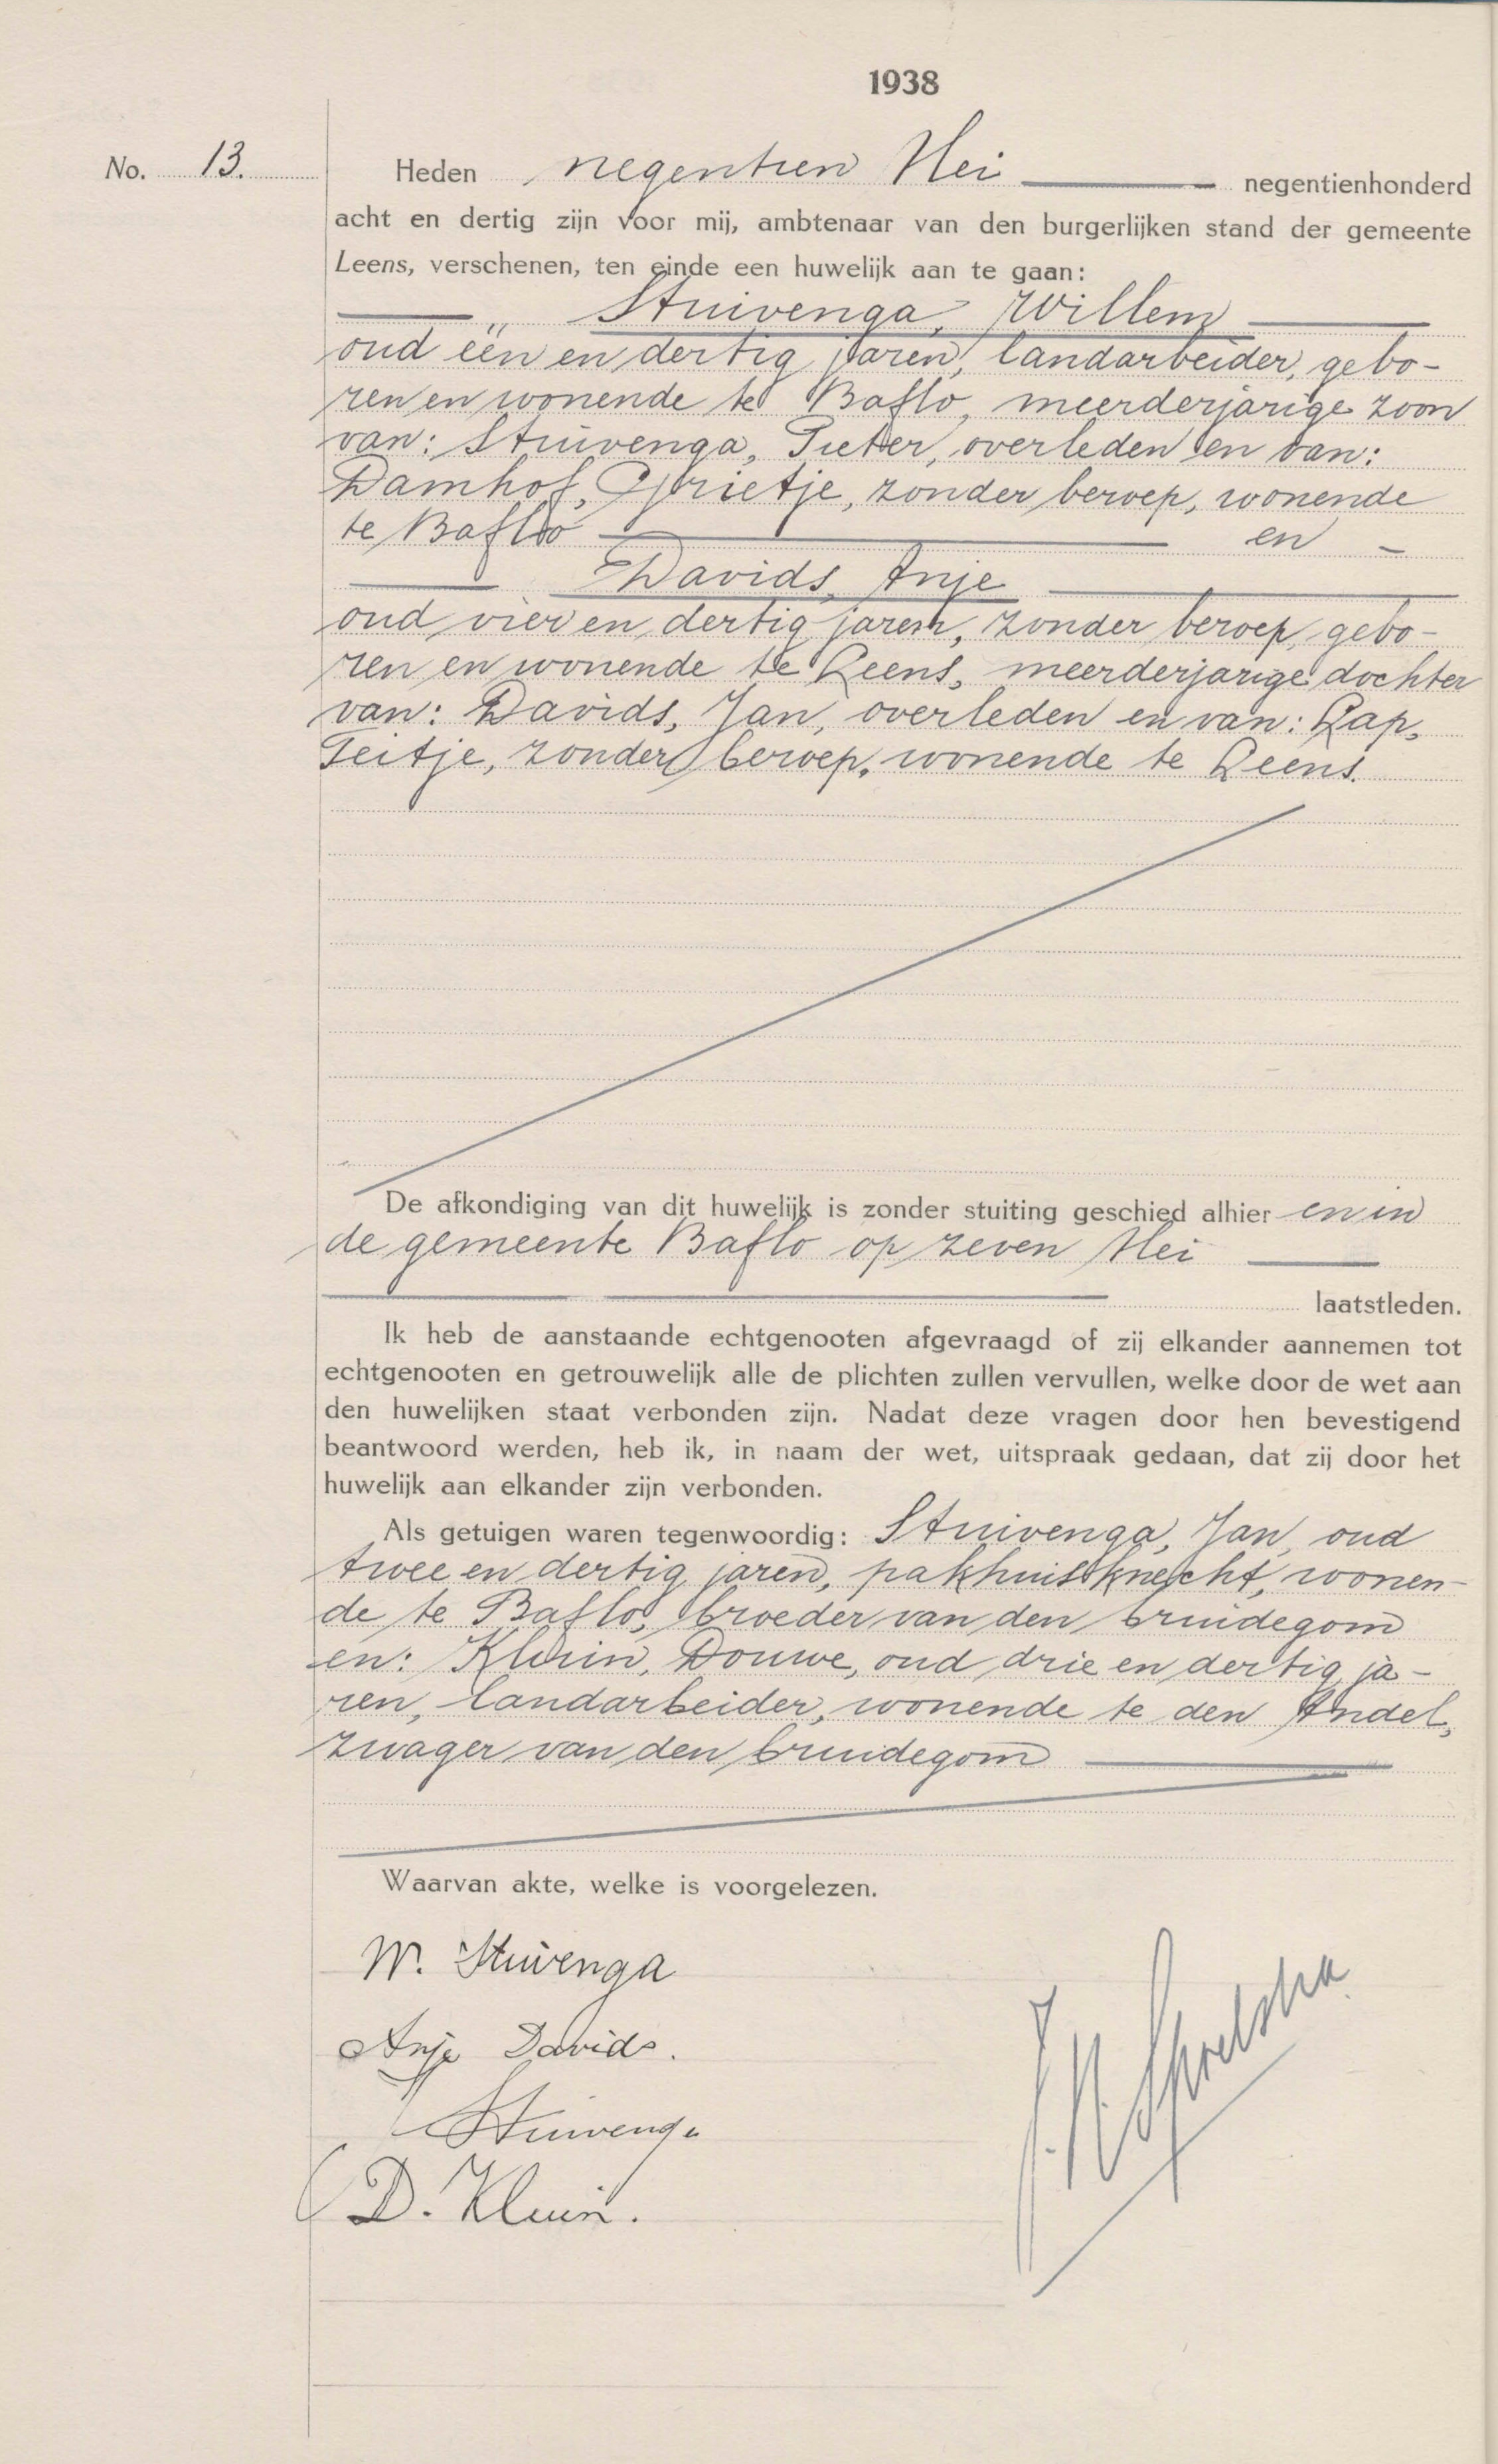 1938
No. 13. Heden negentien Mei negentienhonderd
acht en dertig zijn voor mij, ambtenaar van den burgerlijken stand der gemeente
Leens, verschenen, ten einde een huwelijk aan te gaan:
Stuivenga, Willem
oud één en dertig jaren, landarbeider, gebo-
ren en wonende te Baflo, meerderjarige zoon
van: Stuivenga, Pieter, overleden en van:
Damhof, Grietje, zonder beroep, wonende
te Baflo en -
Davids, Anje
oud vier en dertig jaren, zonder beroep, gebo-
ren en wonende te Leens, meerderjarige dochter
van: Davids, Jan, overleden en van: Rap,
Teitje, zonder beroep, wonende te Leens.
De afkondiging van dit huwelijk is zonder stuiting geschied alhier en in
de gemeente Baflo op zeven Mei
laatstleden.
Ik heb de aanstaande echtgenooten afgevraagd of zij elkander aannemen tot
echtgenooten en getrouwelijk alle de plichten zullen vervullen, welke door de wet aan
den huwelijken staat verbonden zijn. Nadat deze vragen door hen bevestigend
beantwoord werden, heb ik, in naam der wet, uitspraak gedaan, dat zij door het
huwelijk aan elkander zijn verbonden.
Als getuigen waren tegenwoordig: Stuivenga, Jan, oud
twee en dertig jaren, pakhuisknecht, wonen-
de te Baflo, broeder van den bruidegom
en: Kluin, Douwe, oud drie en dertig ja-
ren, landarbeider, wonende te den Andel,
zwager van den bruidegom
Waarvan akte, welke is voorgelezen.
W. Stuivenga
Anje Davids.
Stuivenga
D. Kluin.